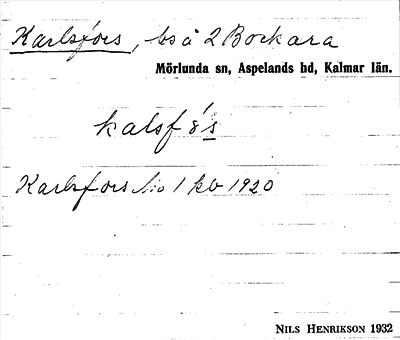 Karlsfors, bs å 2 Bockara
Mörlunda sn, Aspelands hd, Kalmar län.
kalsf 8's
Karlsfors Lio 1 kb 1920
NILS HENRIKSON 1932